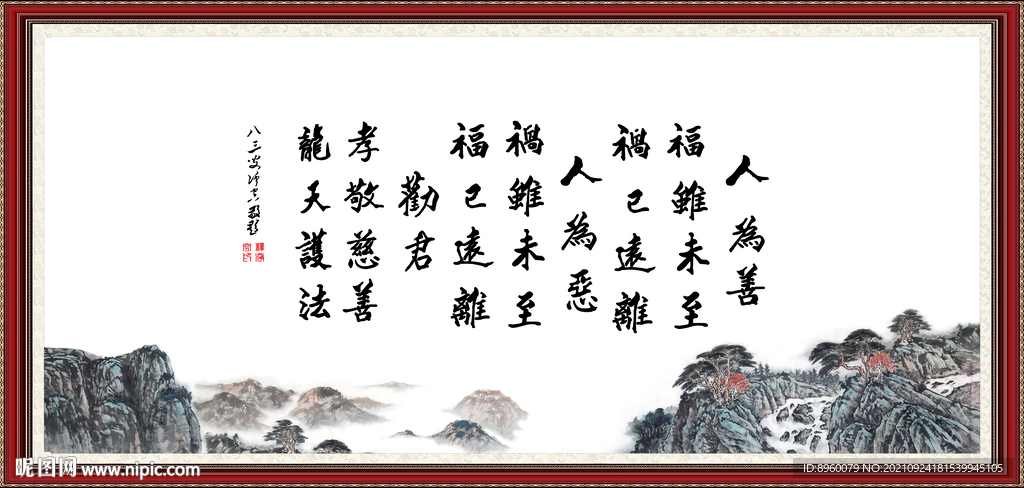 人為善
福雖未至
禍已遠離
人為惡
禍雖未至
福已遠離
勸君
孝敬慈善
龍天護法
昵图网 www.nipic.com
ID:8960079 NO:20210924181539945105